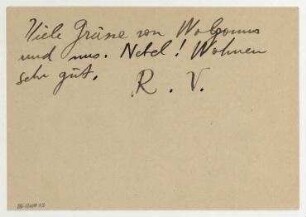 Viele Grüsse von
und uns. Nebel! Wohnen
sehr gut. R. V.